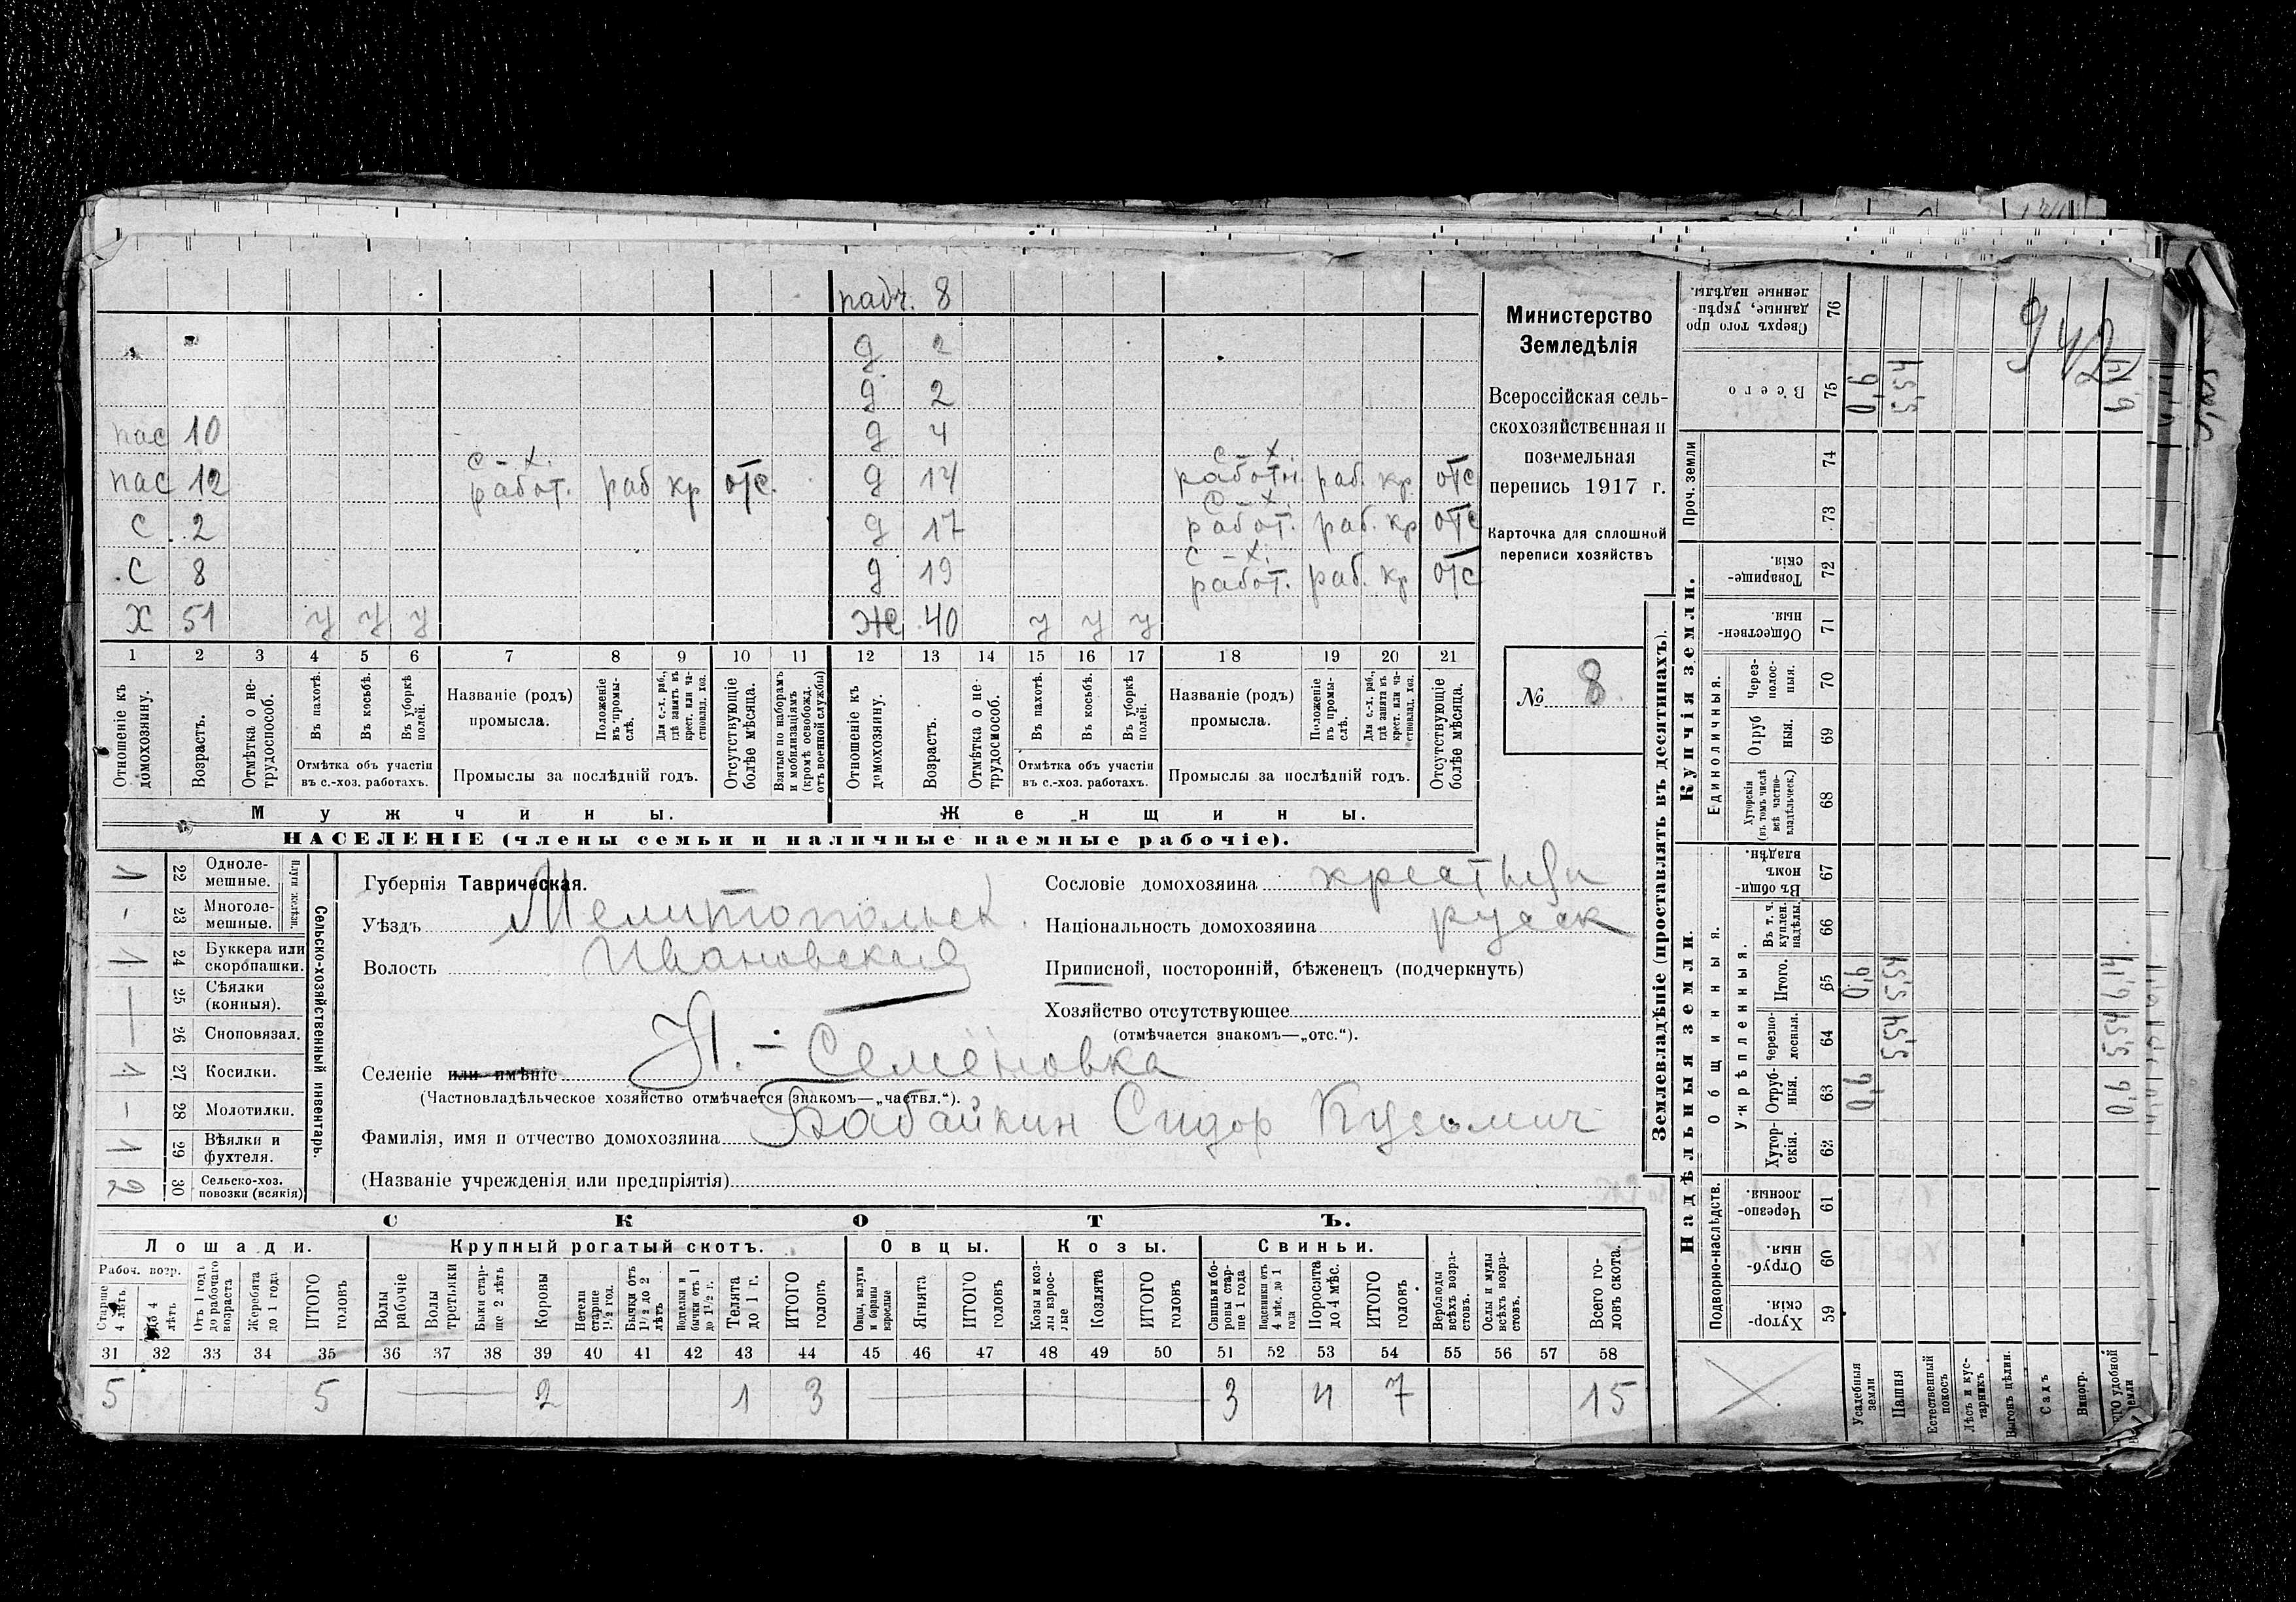 падч. 8
д 2
д 2
пас 10 д 4
пас 12 с-х. работ. раб кр отс. д 14 с-х. работн. раб. кр. отс
С 2 д 17 с-х. работ. раб. кр отс
С 8 д 19 с-х. работ. раб. кр отс
Х 51 у у у Ж 40 у у у
1 2 3 4 5 6 7 8 9 10 11 12 13 14 15 16 17 18 19 20 21
Отношеніе къ домохозяину.
Возрастъ.
Отмѣтка о нетрудоспособ.
Въ пахотѣ.
Въ косьбѣ.
Въ уборкѣ полей.
Отмѣтка объ участіи
въ с.-хоз. работахъ.
Названіе (родъ)
промысла.
Положеніе въ промыслѣ.
Для с.-х. раб., гдѣ занятъ въ крест. или частновлад. хоз.
Промыслы за послѣдній годъ.
Отсутствующіе болѣе мѣсяца.
Взятые по наборамъ и мобилизаціямъ (кромѣ освобожд. отъ военной службы)
Отношеніе къ домохозяину.
Возрастъ.
Отмѣтка о нетрудоспособ.
Въ пахотѣ.
Въ косьбѣ.
Въ уборкѣ полей.
Отмѣтка объ участіи
въ с.-хоз. работахъ.
Названіе (родъ)
промысла.
Положеніе въ промыслѣ.
Для с.-х. раб., гдѣ занята въ крест. или частновлад. хоз.
Промыслы за послѣдній годъ.
Отсутствующіе болѣе мѣсяца.
Мужчины. Женщины.
НАСЕЛЕНІЕ (члены семьи и наличные наемные рабочіе).
Министерство
Земледѣлія
Всероссійская сель-
скохозяйственная и
поземельная
перепись 1917 г.
Карточка для сплошной
переписи хозяйствъ
№ 8
Сельско-хозяйственный инвентарь.
Плуги желѣзн.
1 22 Одноле-
мешные.
- 23 Многоле-
мешные.
1 24 Буккера или
скоропашки.
25 Сѣялки
(конныя).
26 Сноповязал.
1 27 Косилки.
- 28 Молотилки.
1 29 Вѣялки и
фухтеля.
2 30 Сельско-хоз.
повозки (всякія)
Губернія Таврическая.
Уѣздъ Мелитопольск.
Волость Ивановская
Селеніе или имѣніе Н.-Семеновка
(Частновладѣльческое хозяйство отмѣчается знакомъ—„частвл.“).
Фамилія, имя и отчество домохозяина Бабайкин Сидор Кузьмич
(Названіе учрежденія или предпріятія)
Сословіе домохозяина крестьян
Національность домохозяина русск
Приписной, посторонній, бѣженецъ (подчеркнуть)
Хозяйство отсутствующее
(отмѣчается знакомъ—„отс.“).
СКОТЪ.
Лошади. Крупный рогатый скотъ. Овцы. Козы. Свиньи.
Рабоч. возр.
Старше 4 лѣтъ.
До 4 лѣтъ
Отъ 1 года до рабочаго возраста
Жеребята до 1 года
ИТОГО головъ
Волы рабочіе
Волы третьяки
Быки старше 2 лѣтъ
Коровы
Нетели старше 1½ год.
Бычки отъ 1½ до 2 лѣтъ
Подтелки и бычки отъ 1 до 1½ г.
Телята до 1 г.
ИТОГО головъ
Овцы, валухи и бараны взрослые
Ягнята
ИТОГО головъ
Козы и козлы взрослые
Козлята
ИТОГО головъ
Свиньи и боровы старше 1 года
Подсвинки отъ 4 мѣс. до 1 года
Поросята до 4 мѣс.
ИТОГО головъ
Верблюды всѣхъ возрастовъ.
Ослы и мулы всѣхъ возрастовъ.
Всего головъ скота.
31 32 33 34 35 36 37 38 39 40 41 42 43 44 45 46 47 48 49 50 51 52 53 54 55 56 57 58
5 5 2 1 3 3 4 7 15
Землевладѣніе (проставлять въ десятинахъ).
Купчія земли.
Надѣльныя земли.
Сверхъ того проданные, укрѣпленные надѣлы. 76
Всего 75 0,6 5,54
942
Проч. земли 74 73
Товарищескія. 72
Общественныя 71
Единоличныя.
Черезполосныя. 70
Отрубныя. 69
Хуторскія (въ томъ числѣ всѣ частновладѣльческ.) 68
Въ общинномъ владѣн. 67
Общинныя.
Укрѣпленныя.
Въ т. ч. куплен. надѣлы. 66
Итого. 65 0,6 5,54 6,14
Черезполосныя. 64 5,54 5,54
Отрубныя. 63 0,6 0,6
Хуторскія. 62
Подворно-наслѣдств.
Черезполосныя. 61
Отрубныя. 60
Хуторскія. 59
Усадебныя земли
Пашня
Естественный покосъ
Лѣсъ и кустарникъ
Выгонъ цѣлин.
Садъ
Виногр.